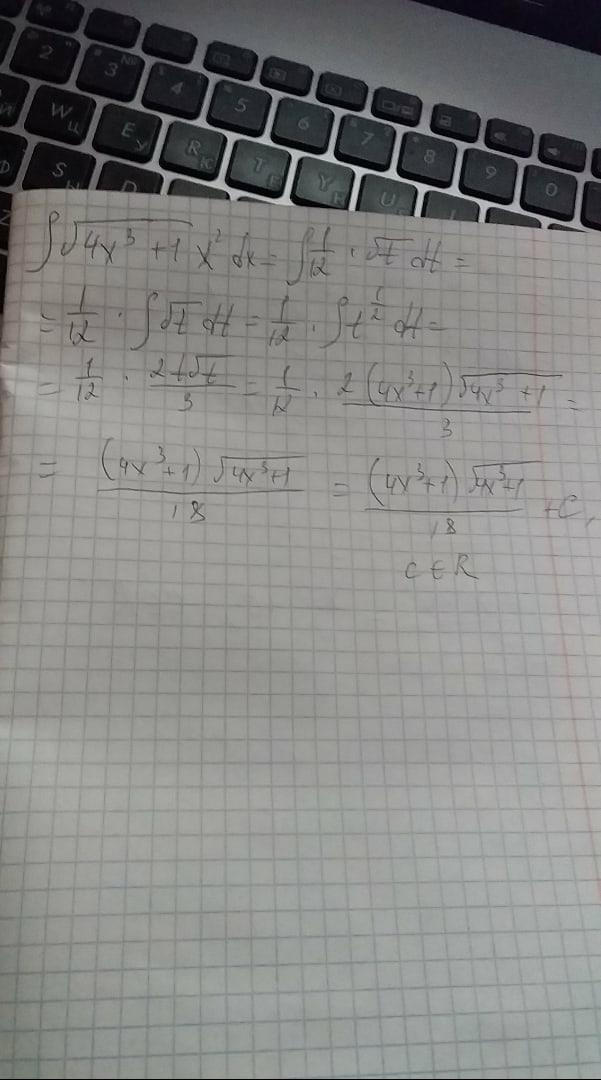 2 3 4 5 6 7 8 9 0
W Ц E У R К T Е Y U
S
∫√(4x³+1) x² dx = ∫ 1/12 · √t dt =
= 1/12 · ∫√t dt = 1/12 · ∫t^(1/2) dt =
= 1/12 · 2t√t/3 = 1/12 · 2(4x³+1)√(4x³+1)/3 =
= (4x³+1)√(4x³+1)/18 = (4x³+1)√(4x³+1)/18 + C,
C ∈ R